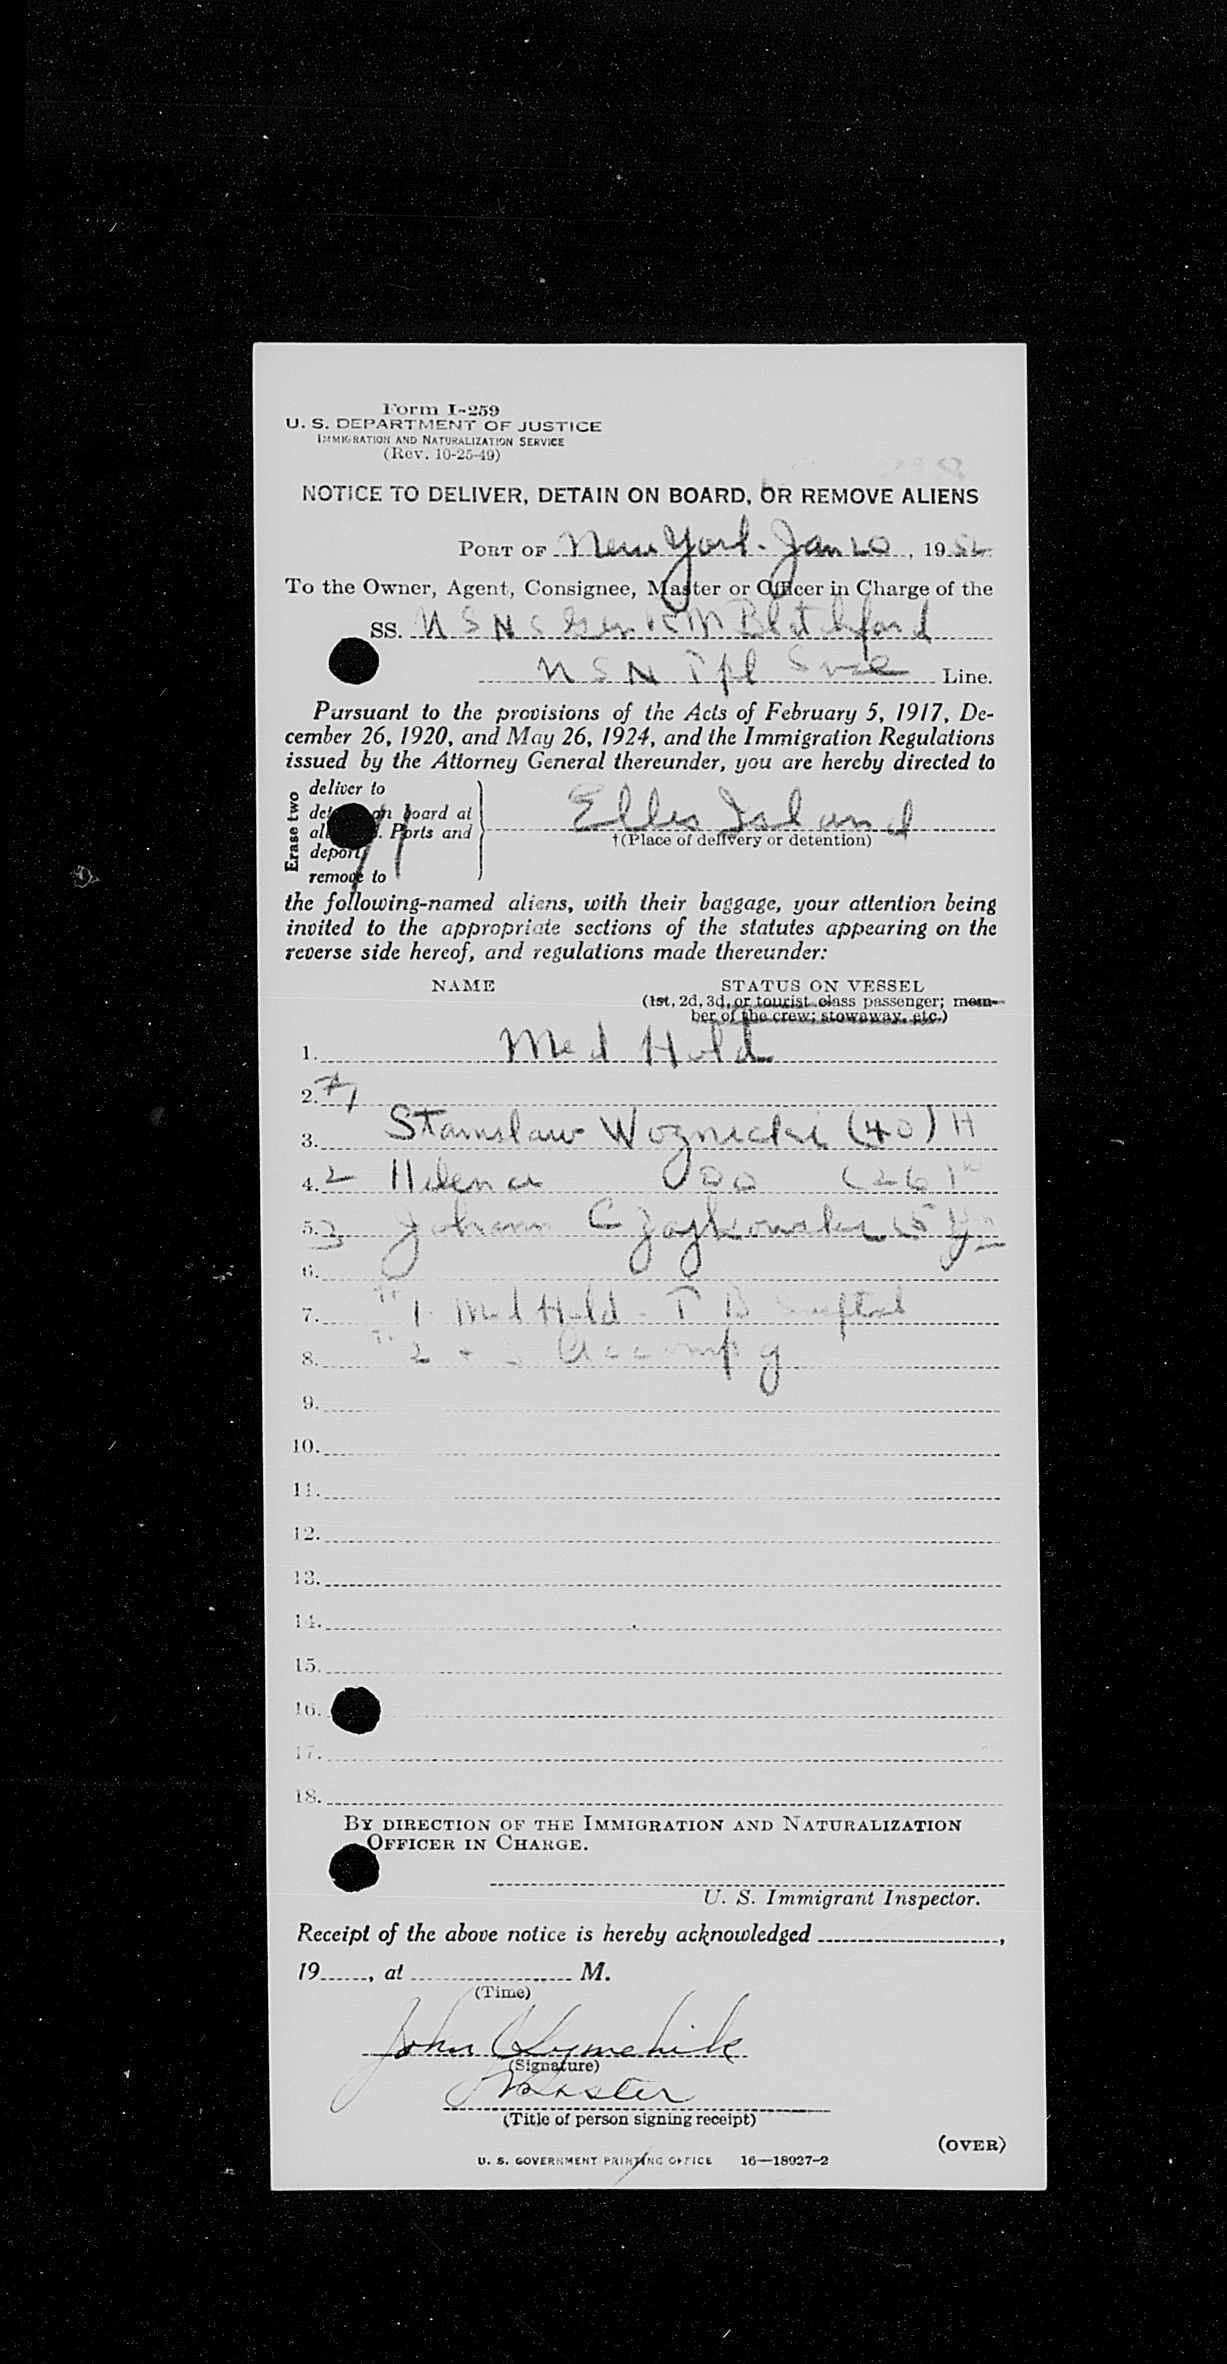 Form I-259
U. S. DEPARTMENT OF JUSTICE
IMMIGRATION AND NATURALIZATION SERVICE
(Rev. 10-25-49)
NOTICE TO DELIVER, DETAIN ON BOARD, OR REMOVE ALIENS
PORT OF New York. Jan 20, 1952
To the Owner, Agent, Consignee, Master or Officer in Charge of the
SS. U S N S Gen R M Blatchford
U S N Tpt Svce Line.
Pursuant to the provisions of the Acts of February 5, 1917, De-
cember 26, 1920, and May 26, 1924, and the Immigration Regulations
issued by the Attorney General thereunder, you are hereby directed to
Erase two
deliver to
on board at
Ports and
deport
remove to
Ellis Island
†(Place of delivery or detention)
the following-named aliens, with their baggage, your attention being
invited to the appropriate sections of the statutes appearing on the
reverse side hereof, and regulations made thereunder:
NAME STATUS ON VESSEL
(1st, 2d, 3d, or tourist class passenger; mem-
ber of the crew; stowaway, etc.)
1. Med Hold
2. #1
3. Stanislaw Woznicki (40) H
4. 2 Helena do (26)
5. 3 Johann Czajkowski (5
6.
7. 1 Med Hold - T B
8. 2 + 3 Accompg
9.
10.
11.
12.
13.
14.
15.
16.
17.
18.
BY DIRECTION OF THE IMMIGRATION AND NATURALIZATION
OFFICER IN CHARGE.
U. S. Immigrant Inspector.
Receipt of the above notice is hereby acknowledged ,
19 , at M.
(Time)
John
(Signature)
Master
(Title of person signing receipt)
(OVER)
U. S. GOVERNMENT PRINTING OFFICE 16—18927-2